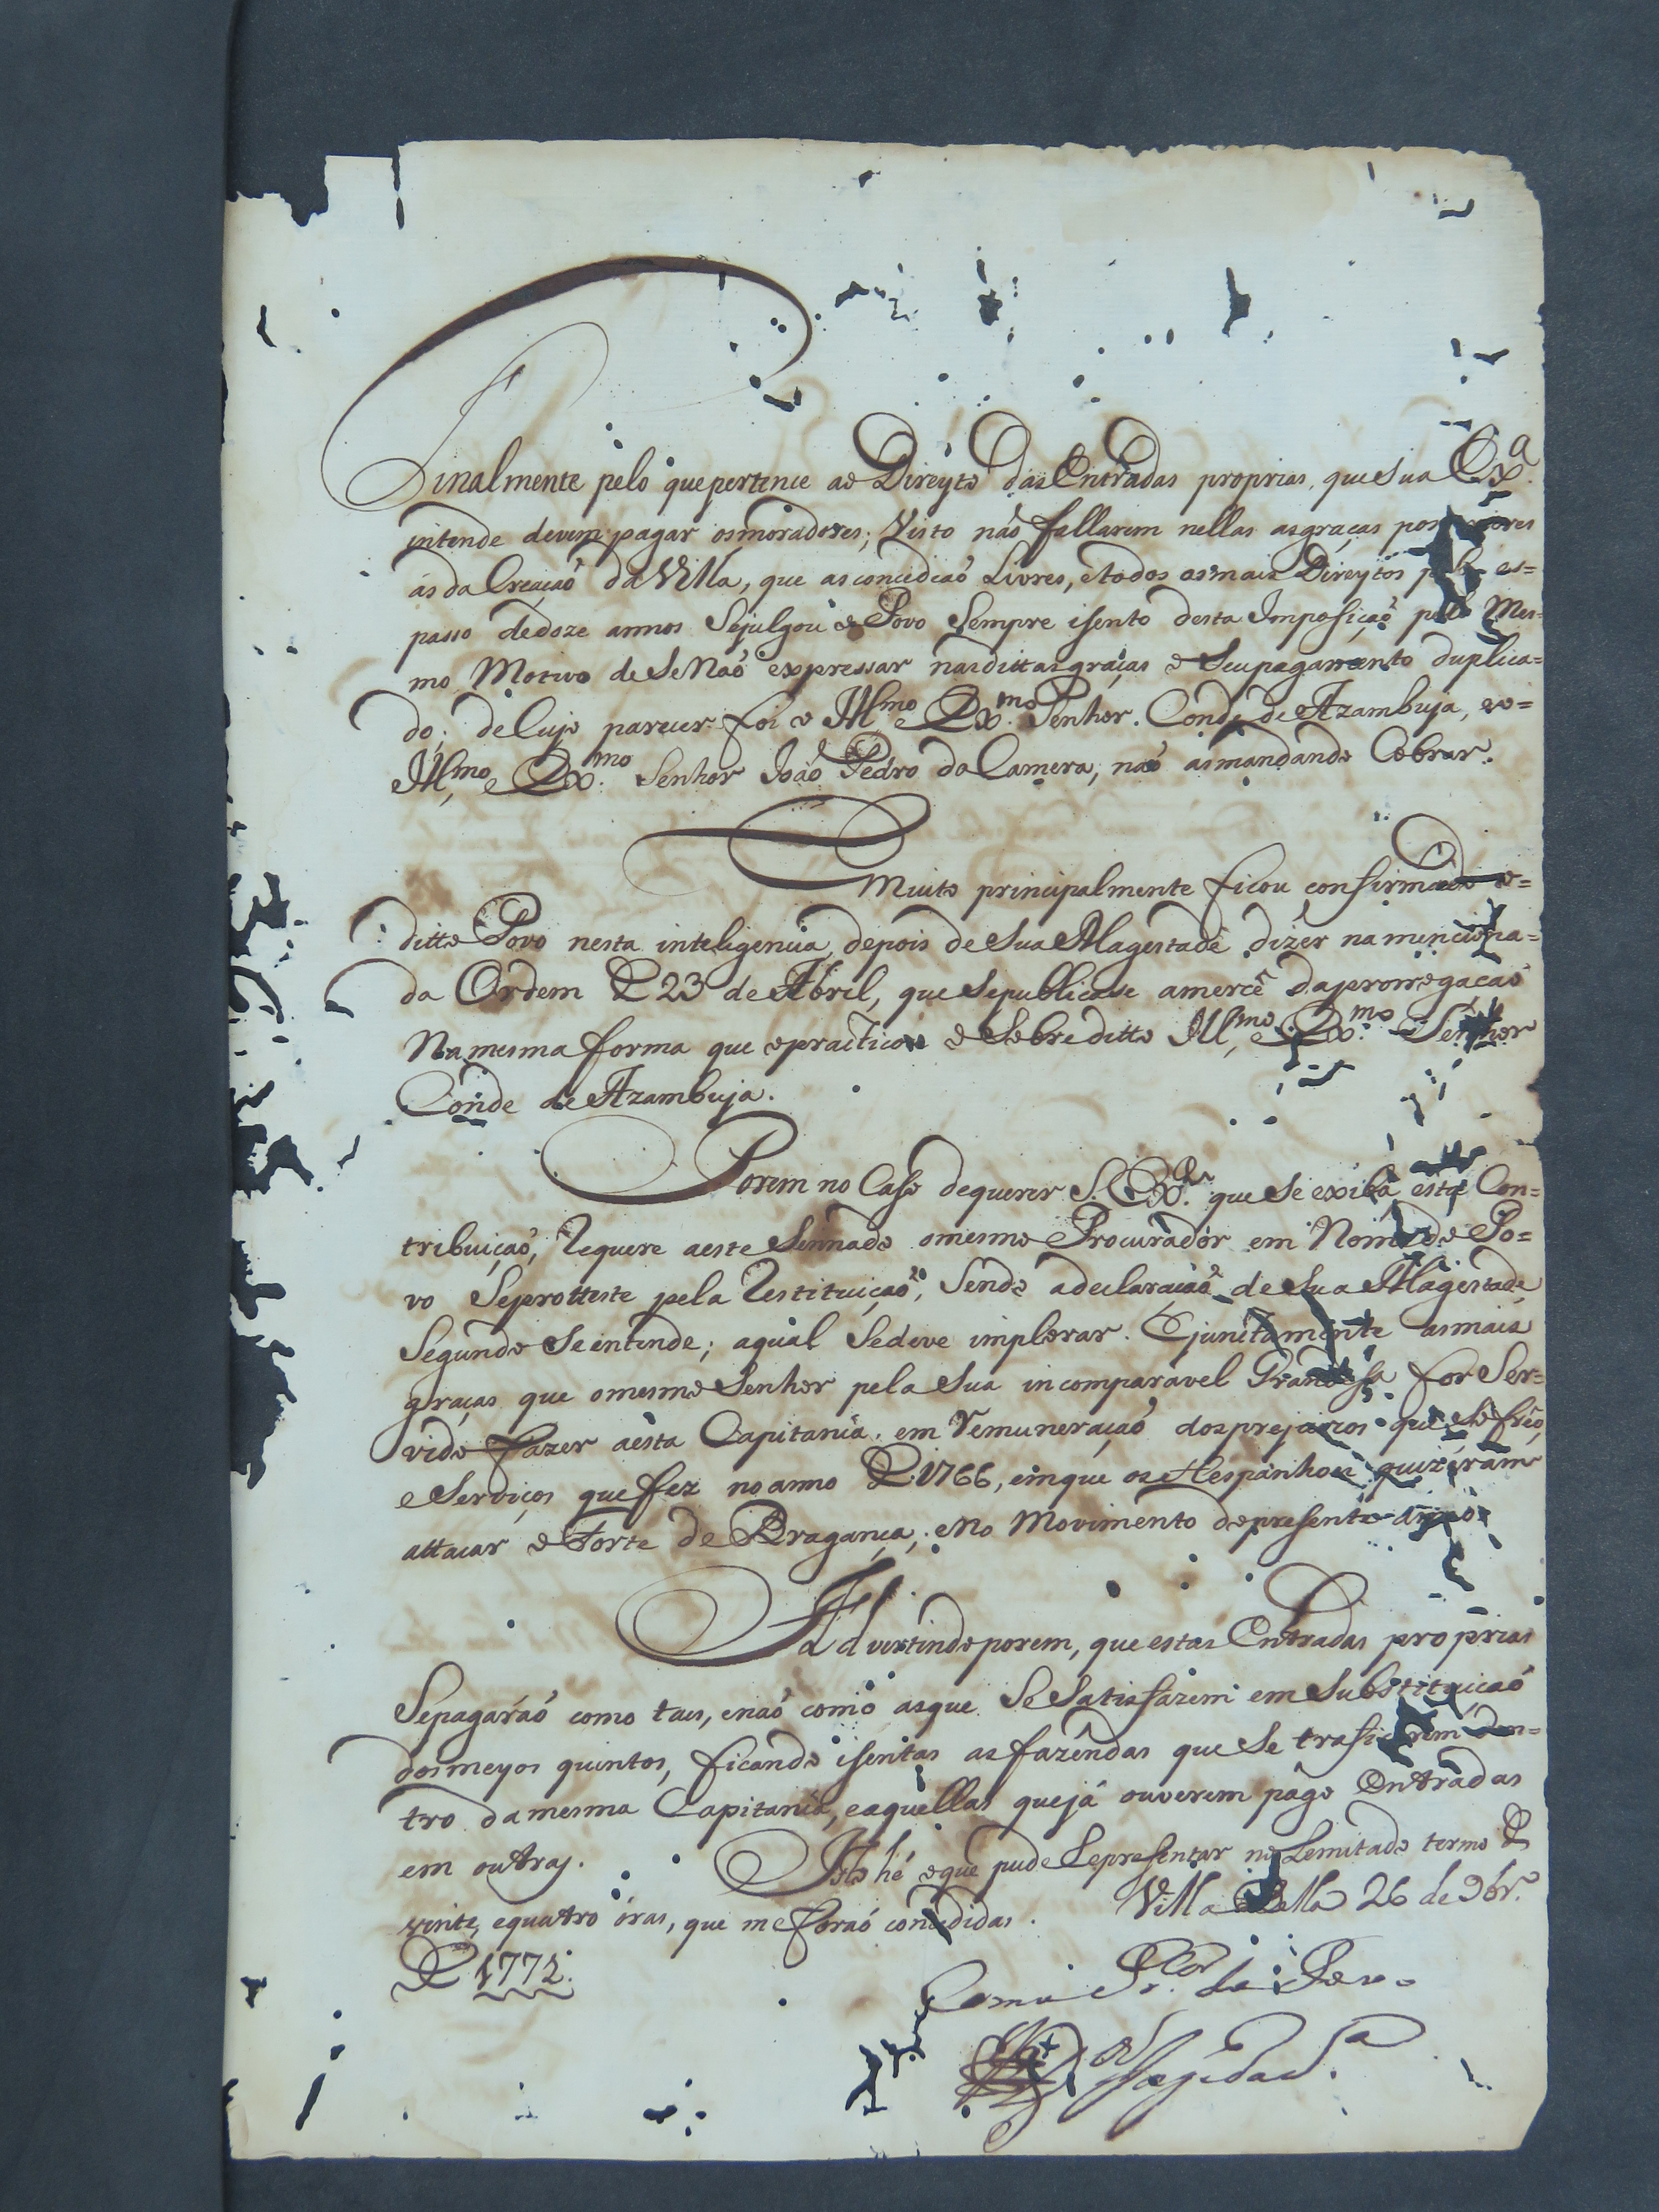 Finalmente pelo que pertence ao Direyto das Entradas proprias, que sua Exª.
intende devem pagar os moradores; Visto naõ fallarem nellas as graças posteriores
ás da Creaçaõ da Villa, que as concediaõ Livres, e todos os mais Direytos pelo es=
passo de doze annos Se julgou o Povo Sempre isento desta Imposiçaõ pelo Mes=
mo Motivo de Se Naõ expressar nas dittas graças o Seu pagamento duplica=
do; de Cujo parecer foi o Illmo e Exmo. Senhor Conde de Azambuja, e o=
Illmo, e Exmo. Senhor Joaõ Pedro da Camera, naõ as mandando Cobrar.
Muito principalmente ficou confirmado o=
ditto Povo nesta inteligencia, depois de Sua Magestade dizer na menciona=
da Ordem De 23 de Abril, que Se publicasse a mercê da prorrogaçaõ
Na mesma forma que o practicou o Sobreditto Illmo, e Exmo. Senhor
Conde de Azambuja.
Porem no Caso de querer S. Exª. que Se exiba esta Con=
tribuiçaõ, Requere a este Sennado o mesmo Procurador em Nome do Po=
vo Se protteste pela Restituiçaõ, Sendo a declaraçaõ de Sua Magestade
Segundo Se intende; a qual Se deve implorar. E juntamente as mais
graças que o mesmo Senhor pela Sua incomparavel Grandesa for Ser=
vido fazer a esta Capitania, em Remuneraçaõ dos prejuizos que Sofreo,
e Serviços que fez no anno De 1766, em que os Hespanhoes quizeram
attacar o Forte de Bragança; e No Movimento do presente anno
Advertindo porem, que estas Entradas proprias
Se pagaráõ como taes, e naõ como as que Se Satisfazem em Substituiçaõ
dos meyos quintos, ficando isentas as fazendas que Se traficarem den=
tro da mesma Capitania, e aquellas que já ouverem pago Entradas
em outras. Isto hé o que pude Representar no Lemitado termo de
vinte, e quatro óras, que me foraõ concedidas. Villa Bella 26 de 9br.º
De 1772.
Como Pr.cor do Povo